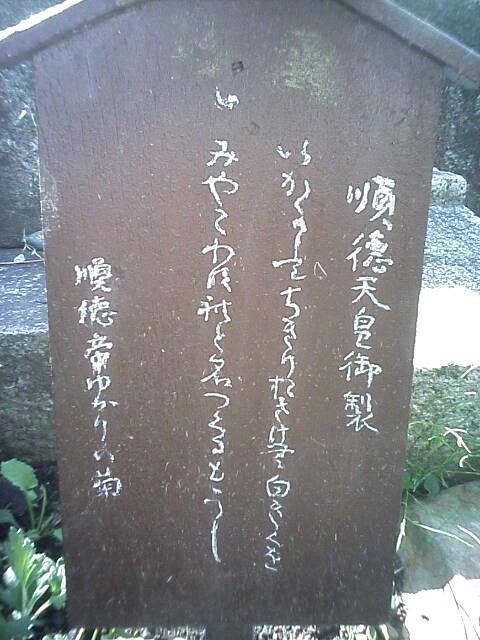 順徳天皇御製
いかにしてちぎりおきけむ白きくを
みやこわすれと名つくるもうし
順徳帝ゆかりの菊